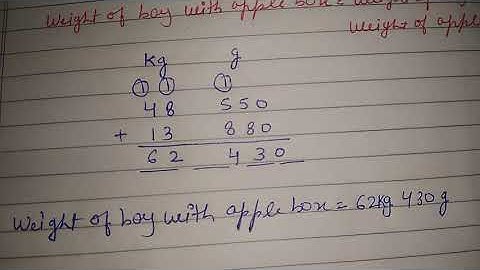 Weight of boy with apple box = weight
Weight of apple
kg g
① ① ①
48 550
+ 13 880
62 430
Weight of boy with apple box = 62kg 430g